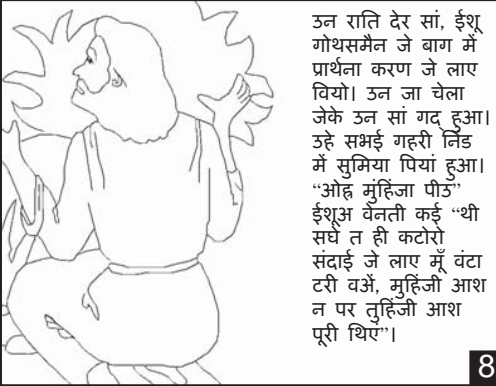 उन राति देर सां, ईशू
गोथसमैन जे बाग में
प्रार्थना करण जे लाए
वियो। उन जा चेला
जेके उन सां गद् हुआ।
उहे सभई गहरी निंड
में सुमिया पियां हुआ।
“ओह्र मुंहिंजा पीउ”
ईशूअ वेनती कई “थी
सघे त ही कटोरो
संदाई जे लाए मूँ वंटा
टरी वञें, मुहिंजी आश
न पर तुहिंजी आश
पूरी थिए”।
8